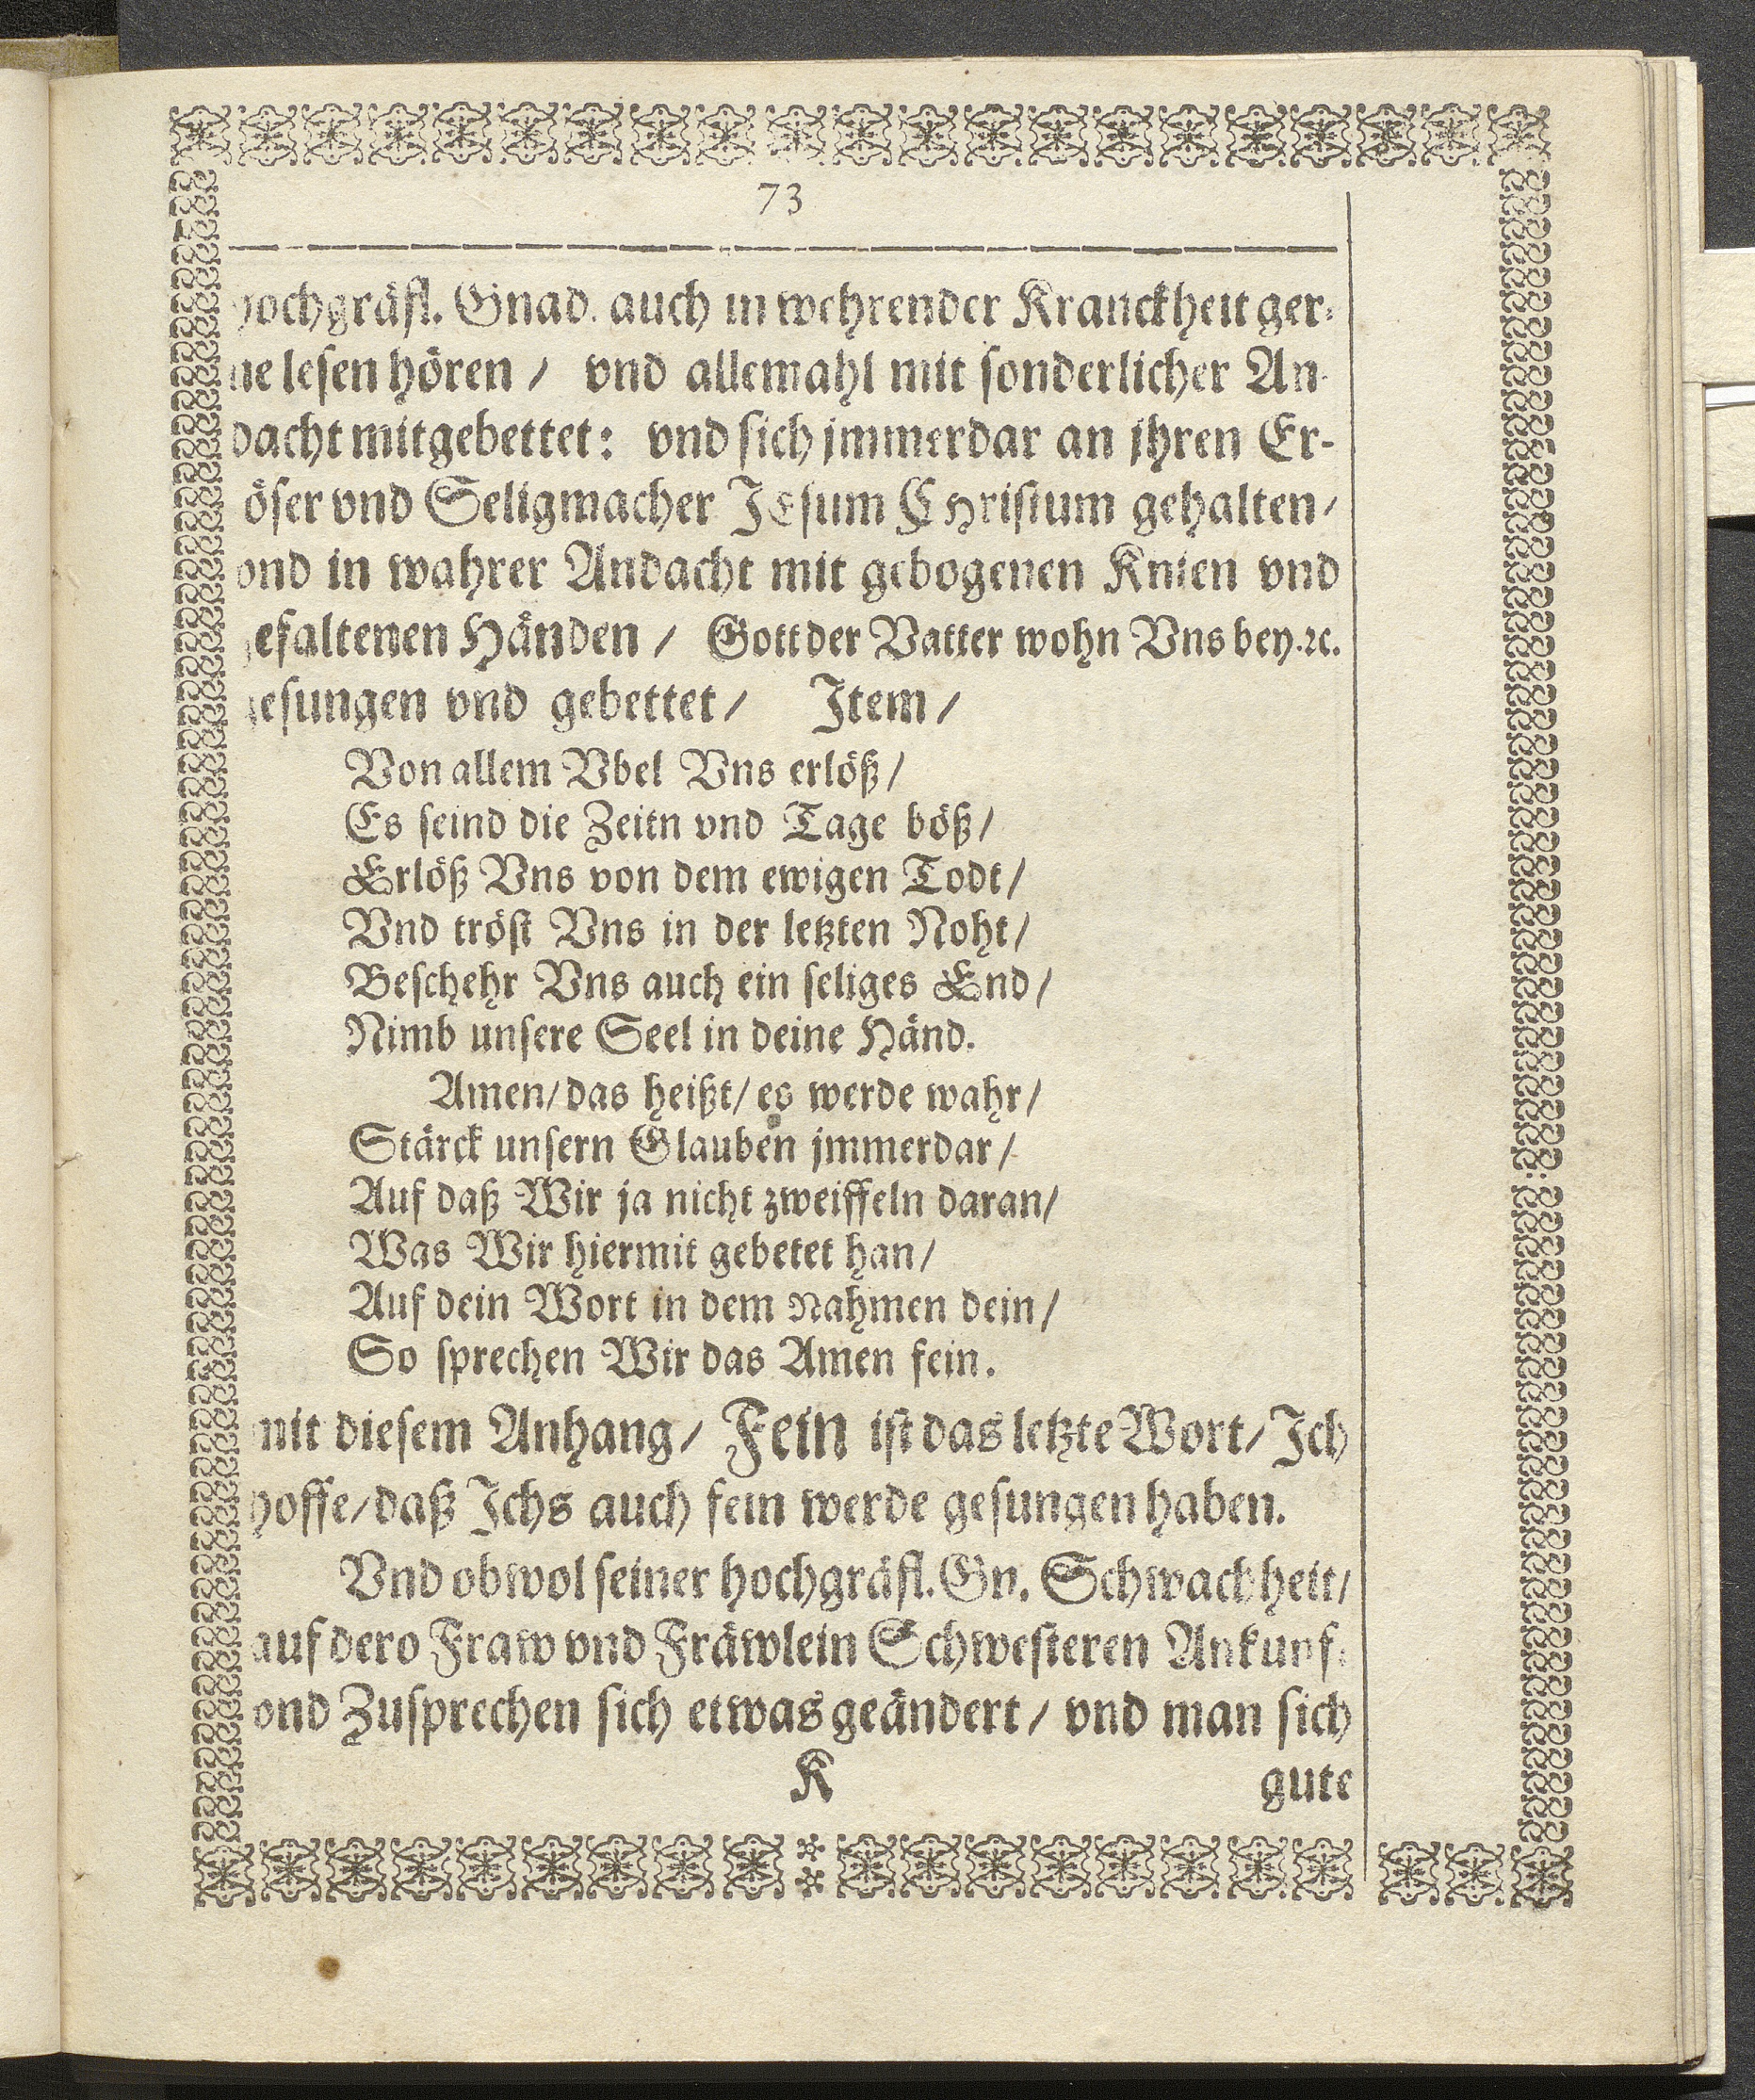 73
hochgräfl. Gnad. auch in wehrender Kranckheit ger-
ne lesen hören / vnd allemahl mit sonderlicher An-
dacht mitgebettet: vnd sich jmmerdar an jhren Er-
öser vnd Seligmacher JEsum CHristum gehalten /
vnd in wahrer Andacht mit gebogenen Knien vnd
gefaltenen Händen / Gott der Vatter wohn Vns bey. ꝛc.
gesungen vnd gebettet / Item /
Von allem Vbel Vns erlöß /
Es seind die Zeitn vnd Tage böß /
Erlöß Vns von dem ewigen Todt /
Vnd tröst Vns in der letzten Noht /
Beschehr Vns auch ein seliges End /
Nimb unsere Seel in deine Händ.
Amen / das heißt / es werde wahr /
Stärck unsern Glauben jmmerdar /
Auf daß Wir ja nicht zweiffeln daran /
Was Wir hiermit gebetet han /
Auf dein Wort in dem Nahmen dein /
So sprechen Wir das Amen fein.
mit diesem Anhang / Fein ist das letzte Wort / Ich
hoffe / daß Ichs auch fein werde gesungen haben.
Vnd obwol seiner hochgräfl. Gn. Schwachheit /
auf dero Fraw vnd Fräwlein Schwesteren Ankunf-
vnd Zusprechen sich etwas geändert / vnd man sich
K gute